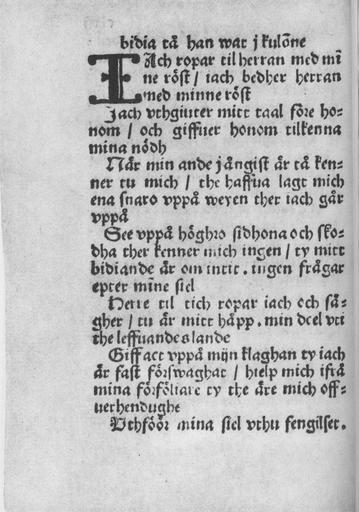 bidia tå han war j kulõne
IAch ropar til herran med mī
ne röst / iach bedher herran
med minne röst
Jach vthgiuter mitt taal före ho-
nom / och giffuer honom tilkenna
mina nödh
När min ande j ångist är tå ken-
ner tu mich / the haffua lagt mich
ena snaro vppå weyen ther iach går
vppå
See vppå höghro sidhona och sko-
dha ther kenner mich ingen / ty mitt
bidiande är om intit . ingen frågar
epter mīne siel
Herre til tich ropar iach och så-
gher / tu är mitt håpp . min deel vti
the leffuandes lande
Giff act vppå mijn klaghan ty iach
är fast förswaghat / hielp mich ifrå
mina förföliare ty the äre mich off-
uerhendughe
Vthföör mina siel vthu fengilset .